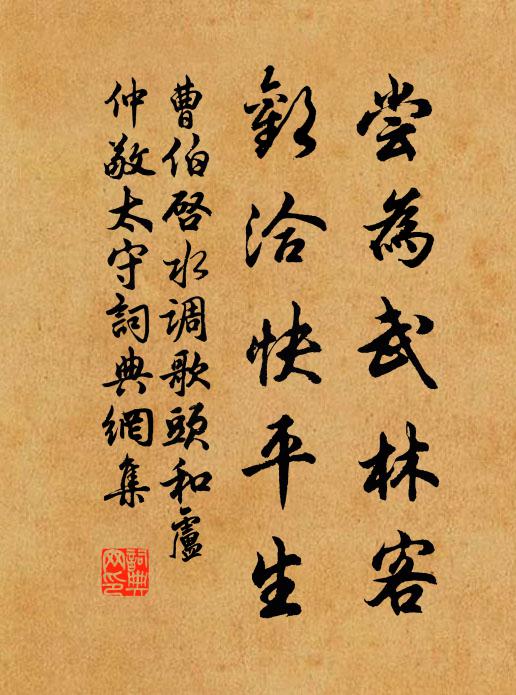 尝為武林客
歡洽快平生
曹伯啓水调歌頭和盧
仲敬太守詞典網集
詞典网印